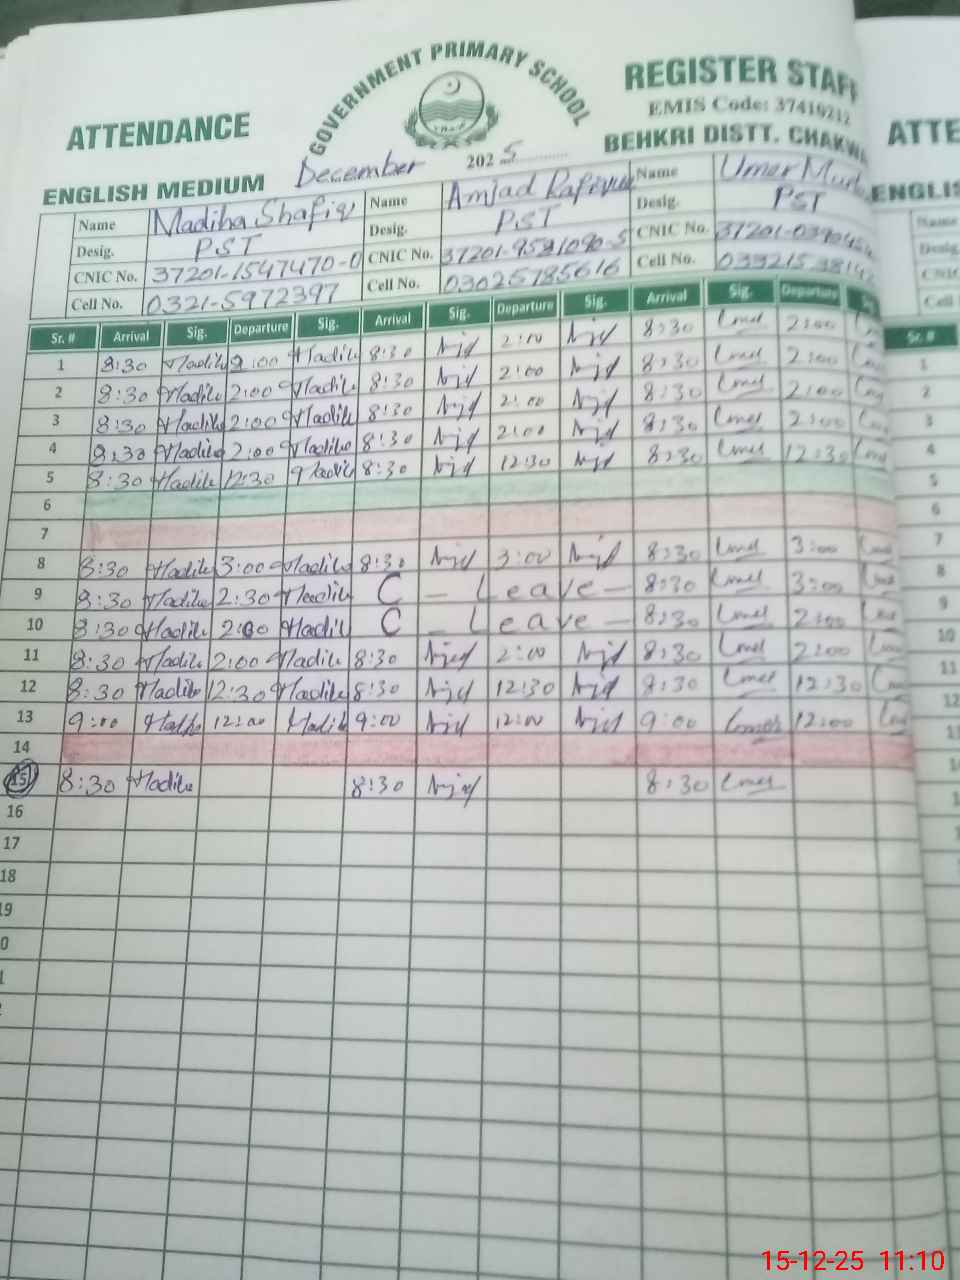 GOVERNMENT PRIMARY SCHOOL
REGISTER STAFF
EMIS Code: 37410212
ATTENDANCE
BEHKRI DISTT. CHAKW
ATTE
ENGLISH MEDIUM December 2025
ENGLIS
Name Madiha Shafiq Name Amjad Name Umer
Desig. PST Desig. PST Desig. PST
CNIC No. 37201-1547470-0 CNIC No. 37201-9581090-5 CNIC No.
Cell No. 0321-5972397 Cell No. 03025785616 Cell No.
Sr. # Arrival Sig. Departure Sig. Arrival Sig. Departure Sig. Arrival Sig. Departure Sr. #
1 8:30 Madiha 2:00 Madiha 8:30 2:00 8:30 Umer 2:00 1
2 8:30 Madiha 2:00 Madiha 8:30 2:00 8:30 Umer 2:00 2
3 8:30 Madiha 2:00 Madiha 8:30 2:00 8:30 Umer 2:00 3
4 8:30 Madiha 2:00 Madiha 8:30 2:00 8:30 Umer 2:00 4
5 8:30 Madiha 12:30 Madiha 8:30 12:30 8:30 Umer 12:30 5
6 6
7 7
8 8:30 Madiha 3:00 Madiha 8:30 3:00 8:30 Umer 3:00 8
9 8:30 Madiha 2:30 Madiha C - Leave - 8:30 Umer 3:00 9
10 8:30 Madiha 2:00 Madiha C - Leave - 8:30 Umer 2:00 10
11 8:30 Madiha 2:00 Madiha 8:30 2:00 8:30 Umer 2:00 11
12 8:30 Madiha 12:30 Madiha 8:30 12:30 8:30 Umer 12:30 12
13 9:00 Madiha 12:00 Madiha 9:00 12:00 9:00 Umer 12:00
14
15 8:30 Madiha 8:30 8:30 Umer
16
17
18
19
15-12-25 11:10